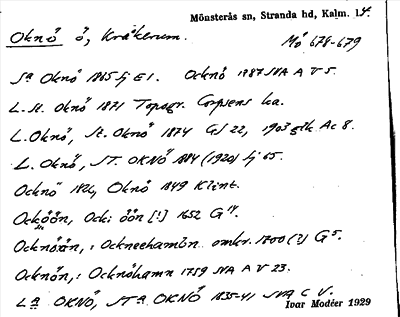 Mönsterås sn, Stranda hd, Kalm. l.
Oknö ö, Kråkerum.
Mö 678-679
Sa Oknö 1865 lj E1. Ocknö 1787 SVA A V 5.
L. St. Oknö 1871 Topogr. Corpsens ka.
L. Oknö, St. Oknö 1874 GS 22, 1903 gtk Ac 8.
L. Oknö, ST. OKNÖ 1884 (1920) lj 65.
Ocknö 1826, Oknö 1849 Klint.
Ocköön, Ock: öön [!] 1652 G 14.
Ocknöön, : Ockneehamön omkr. 1700 (?) G 5.
Ocknön, : Ocknöhamn 1759 SVA A V 23.
La OKNÖ, STa OKNÖ 1835-41 SVA C V.
Ivar Modéer 1929